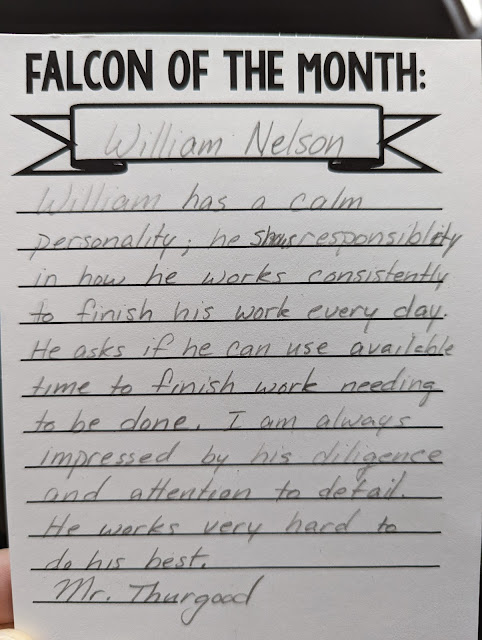 FALCON OF THE MONTH:
William Nelson
William has a calm
personality; he shows responsiblity
in how he works consistently
to finish his work every day.
He asks if he can use available
time to finish work needing
to be done. I am always
impressed by his diligence
and attention to detail.
He works very hard to
do his best.
Mr. Thurgood